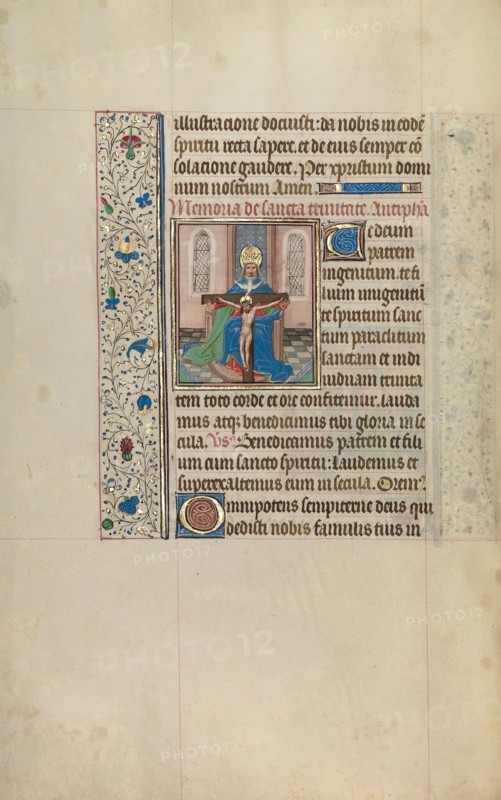 illustracione docuisti: da nobis in codē
spiritu recta sapere. et de eius semper cō
solacione gaudere. Per xpristum domi
num nostrum Amen
Memoria de sancta trinitate. Antipha
Te deum
patrem
ingenitum. te fi
lium unigenitū
te spiritum sanc
tum paraclitum
sanctam et indi
uiduam trinita
tem toto corde et ore confitemur. lauda
mus atqz benedicimus tibi gloria in se
cula. Vs. Benedicamus patrem et fili
um cum sancto spiritu: laudemus et
superexaltemus eum in secula. Orem?
Omnipotens sempiterne deus qui
dedisti nobis famulis tuis in
PHOTO12